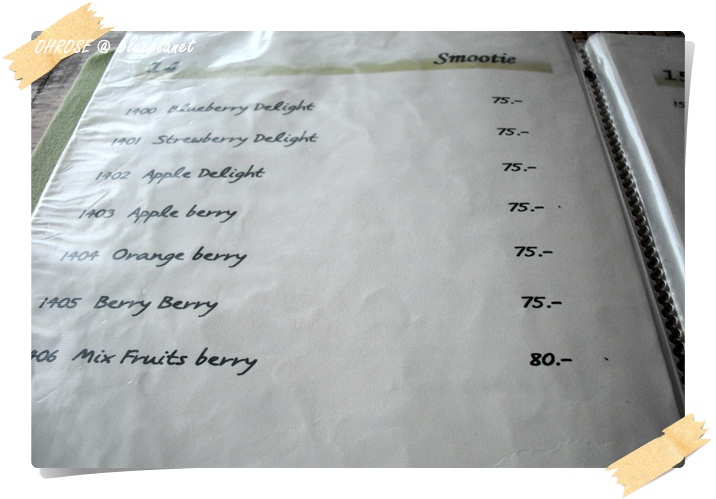 OHROSE @ blueplanet
14 Smootie
1400 Blueberry Delight 75.-
1401 Strewberry Delight 75.-
1402 Apple Delight 75.-
1403 Apple berry 75.-
1404 Orange berry 75.-
1405 Berry Berry 75.-
406 Mix Fruits berry 80.-
15